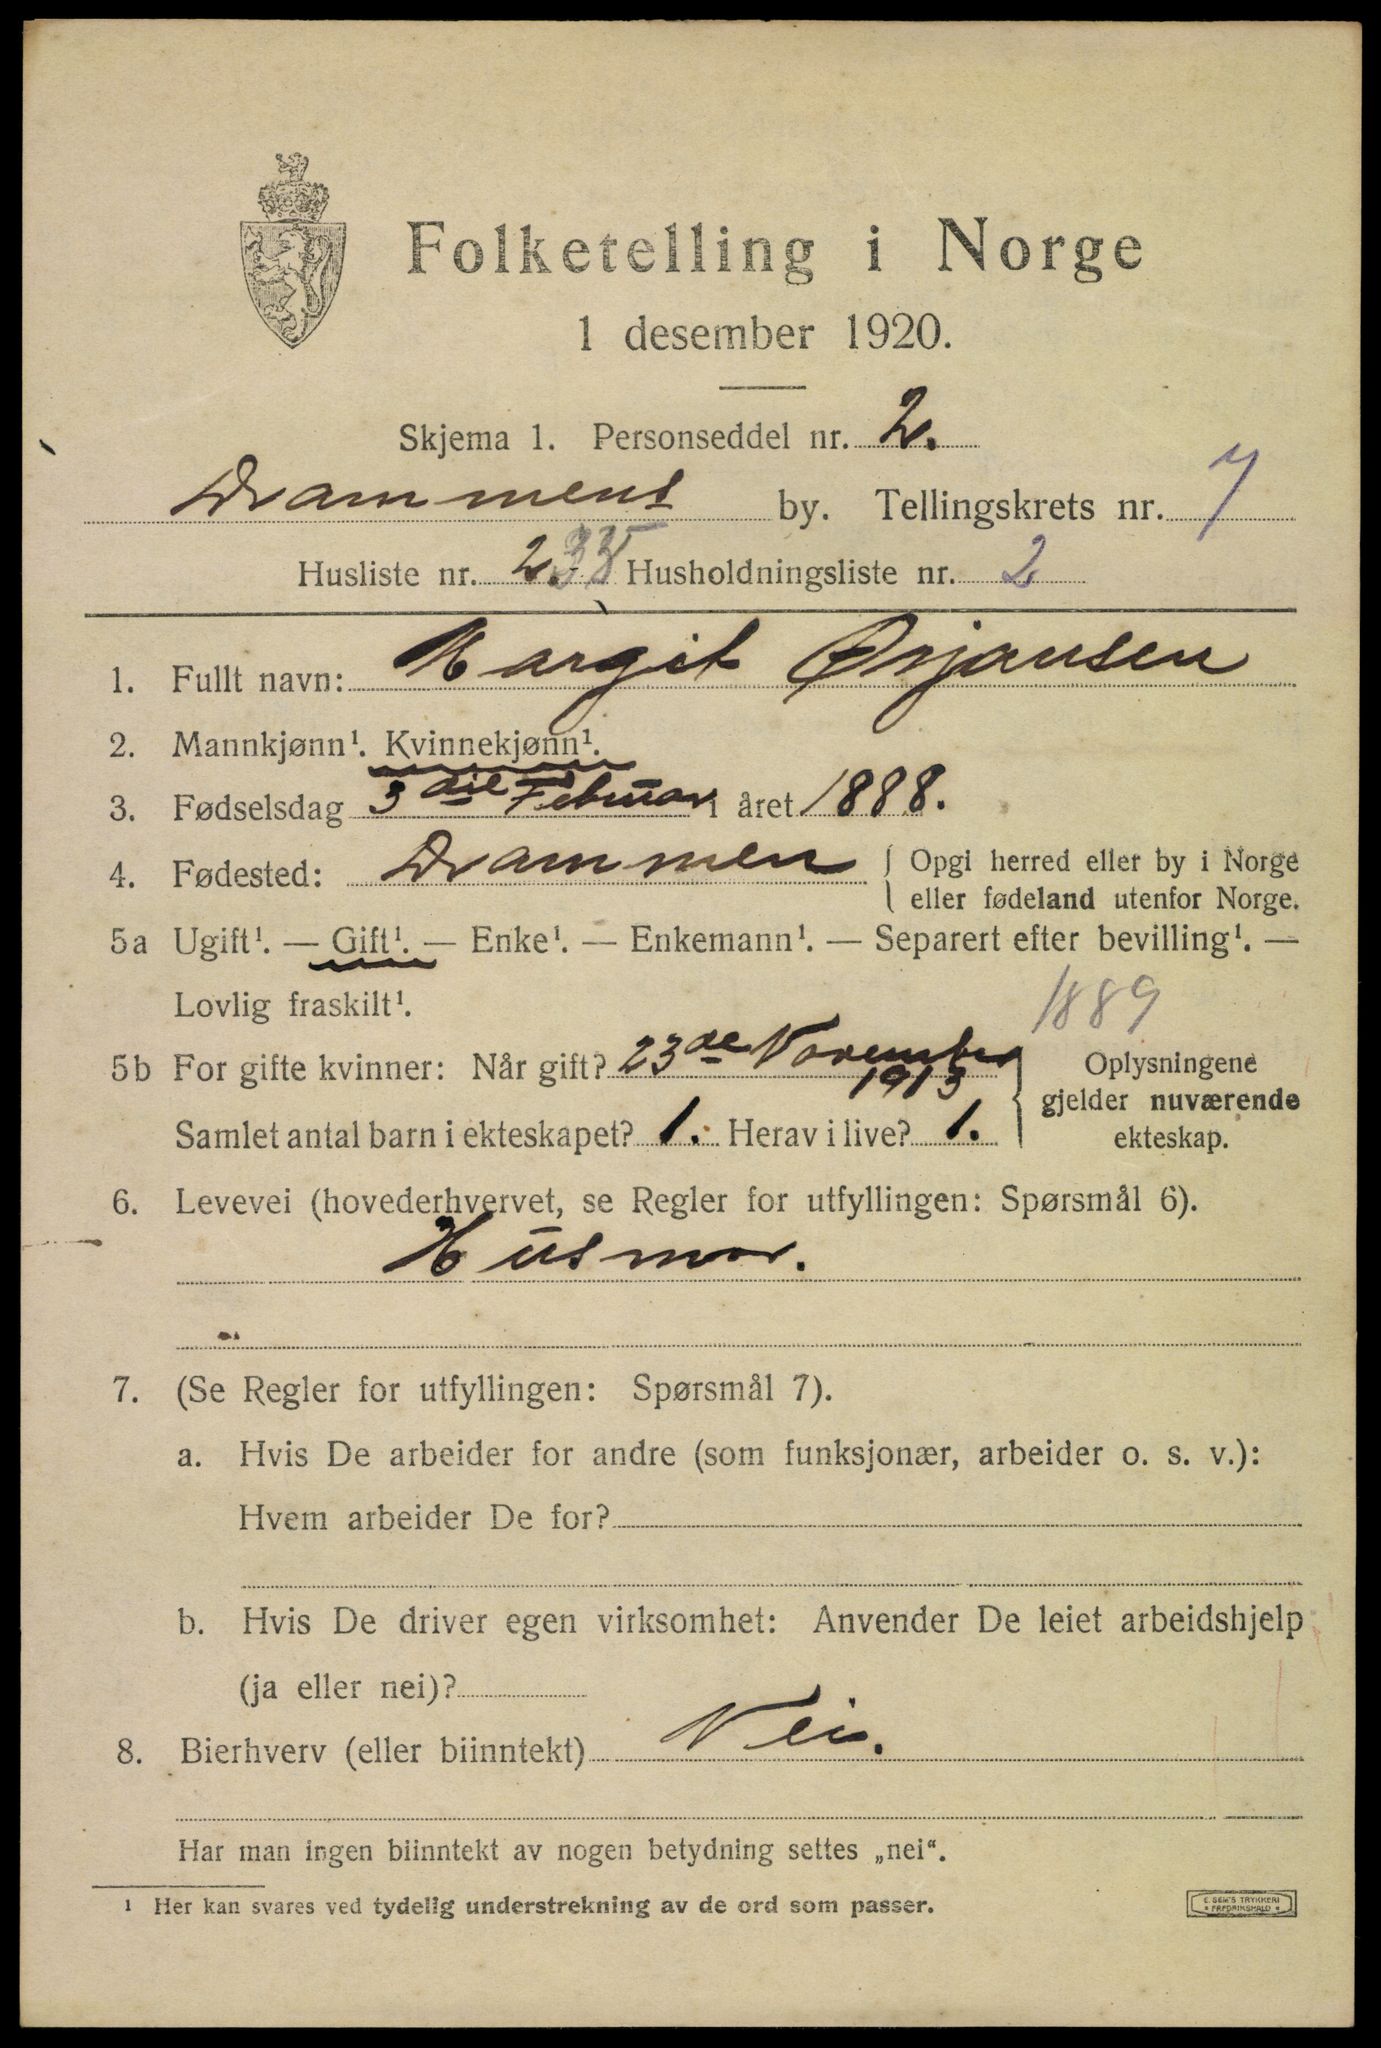 Folketelling i Norge
1 desember 1920.
Skjema 1. Personseddel nr. 2.
Drammens by. Tellingskrets nr. 7
Husliste nr. 2. Husholdningsliste nr. 2
1. Fullt navn: Margit Ørjansen
2. Mannkjønn¹. Kvinnekjønn¹.
3. Fødselsdag 3die Februar i året 1888.
4. Fødested: Drammen { Opgi herred eller by i Norge
eller fødeland utenfor Norge.
5a Ugift¹. — Gift¹. — Enke¹. — Enkemann¹. — Separert efter bevilling¹. —
Lovlig fraskilt¹.
1889
5b For gifte kvinner: Når gift? 23de November
1913
Samlet antal barn i ekteskapet? 1. Herav i live? 1.
{ Oplysningene
gjelder nuværende
ekteskap.
6. Levevei (hovederhvervet, se Regler for utfyllingen: Spørsmål 6).
Husmor.
7. (Se Regler for utfyllingen: Spørsmål 7).
a. Hvis De arbeider for andre (som funksjonær, arbeider o. s. v.):
Hvem arbeider De for?
b. Hvis De driver egen virksomhet: Anvender De leiet arbeidshjelp
(ja eller nei)?
8. Bierhverv (eller biinntekt) Nei.
Har man ingen biinntekt av nogen betydning settes „nei“.
¹ Her kan svares ved tydelig understrekning av de ord som passer.
E. SEM'S TRYKKERI
* FREDRIKSHALD *